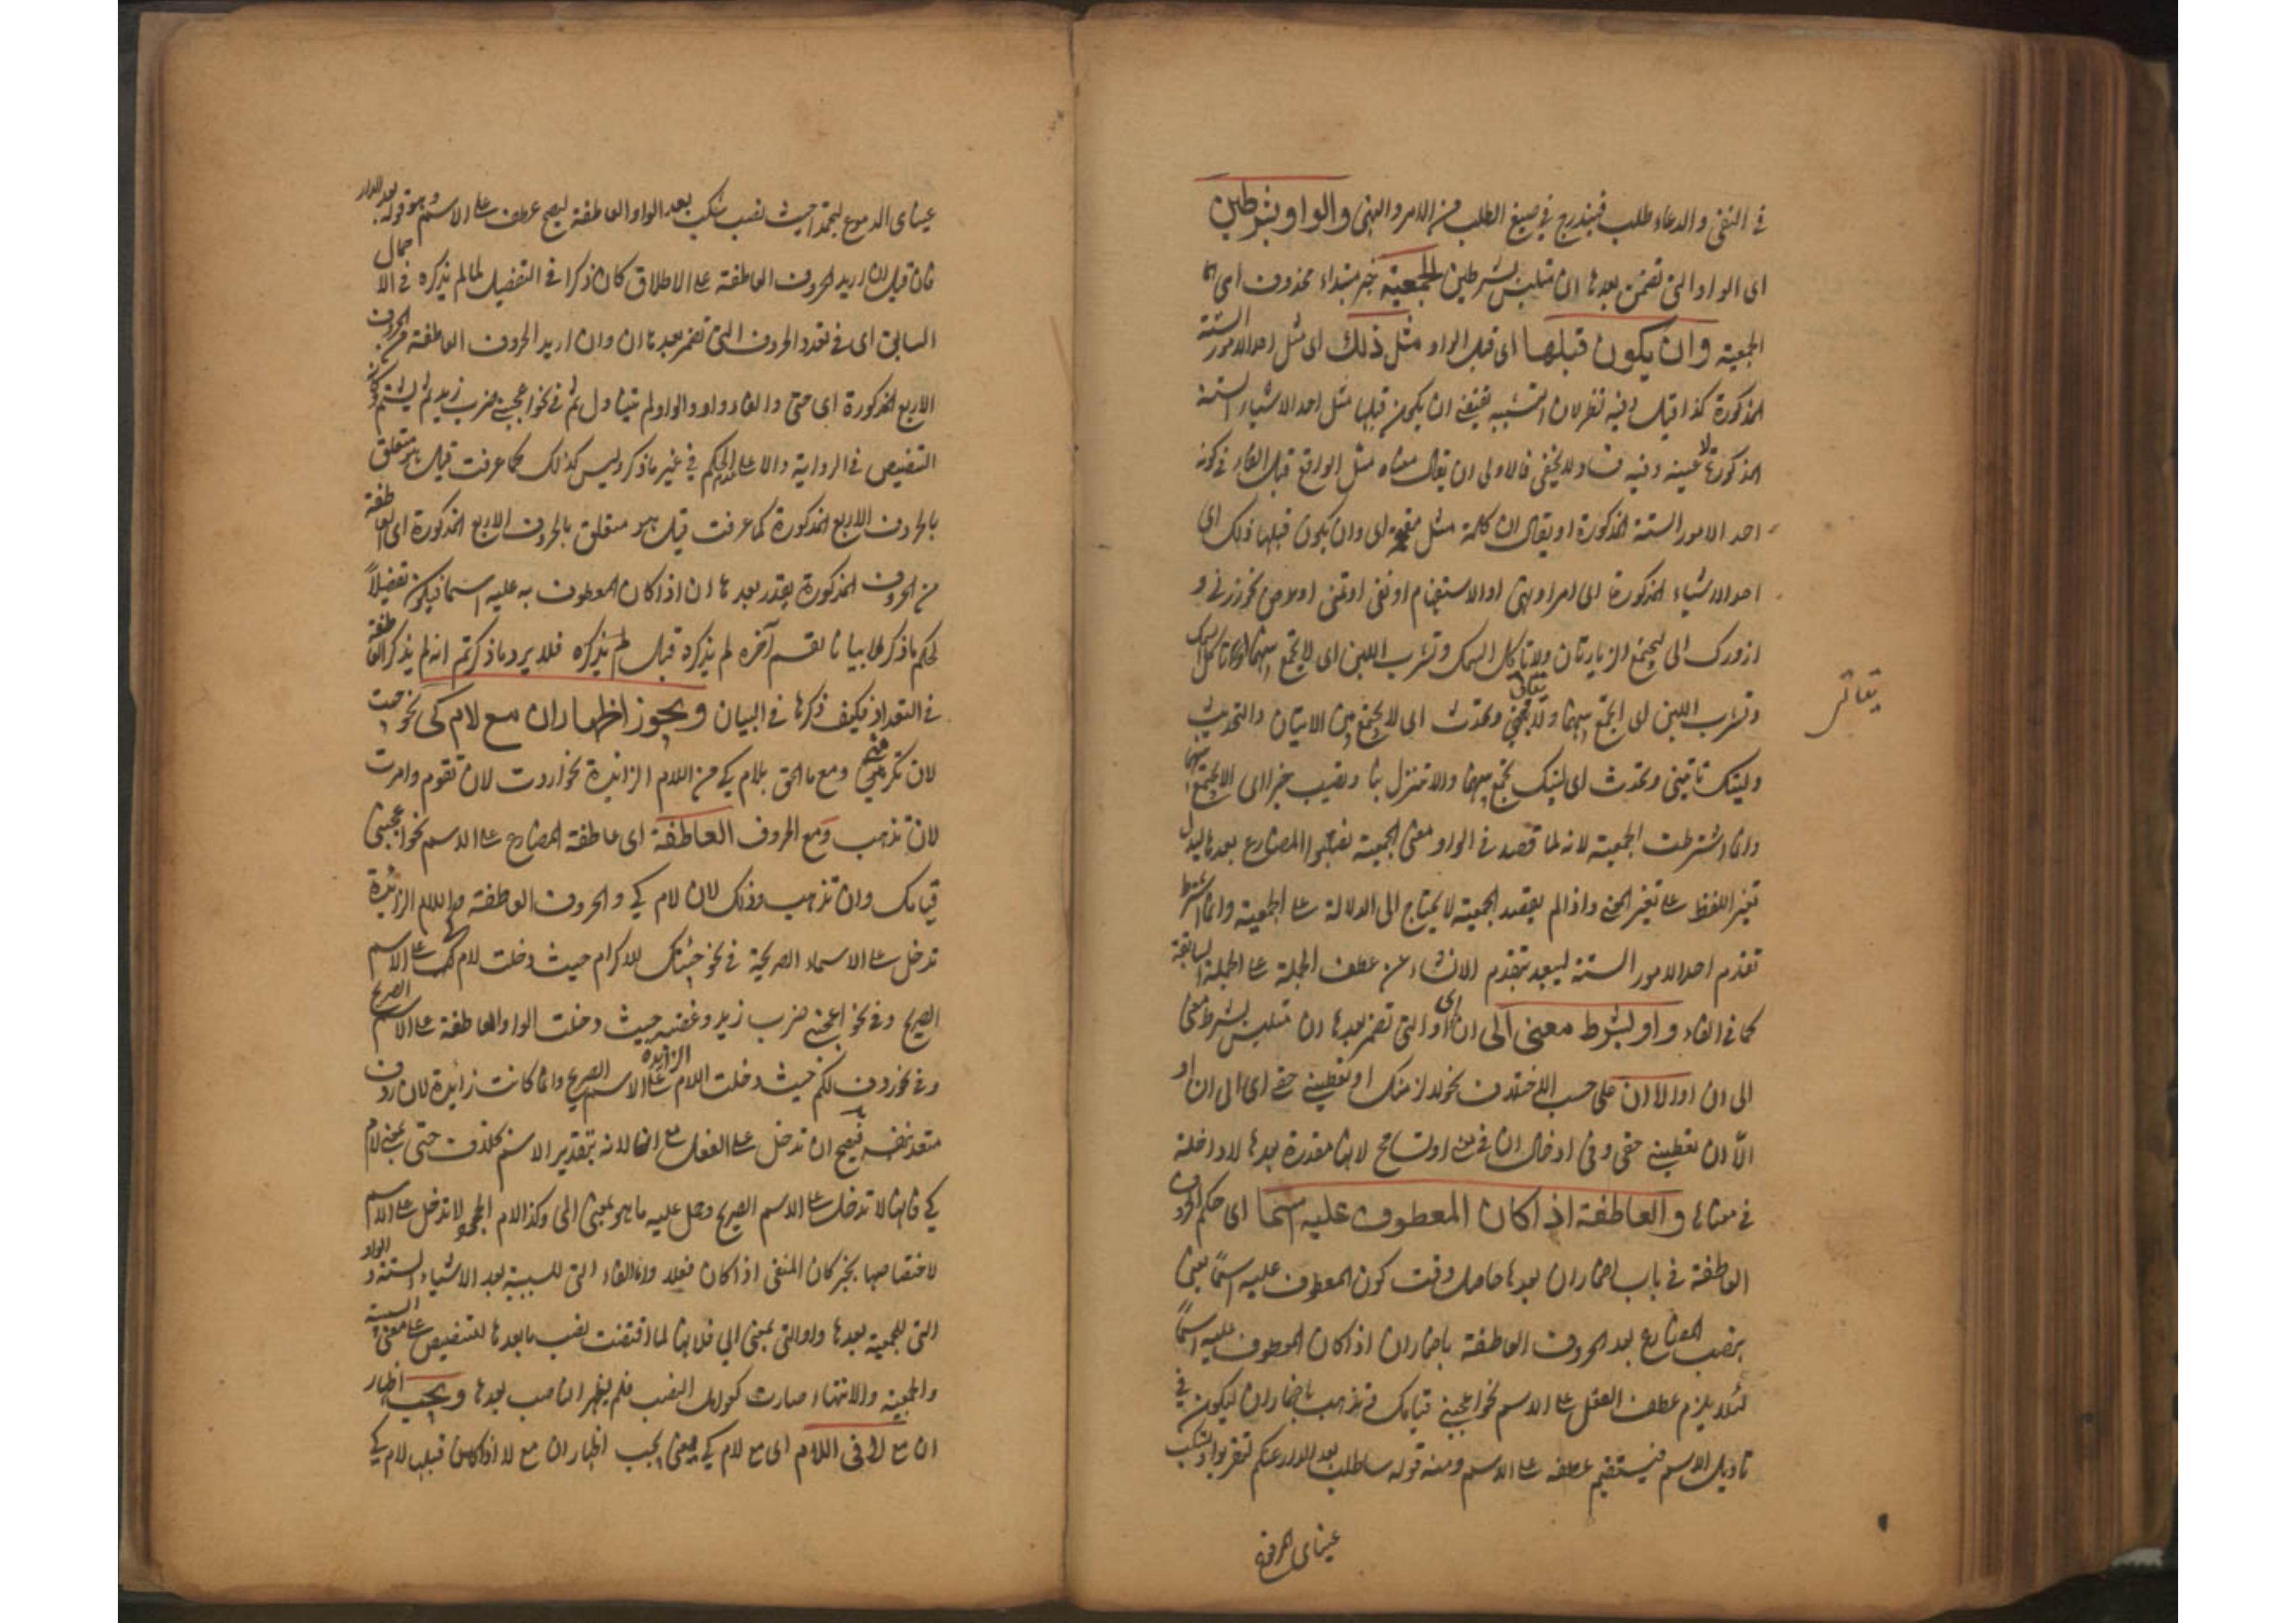 في النفي والدعاء طلب فيندرج في صيغ الطلب من الامر والنهي والواو بشرطين
اى الواو التي تضمر بعدها ان متلبس بشرطين الجمعية خبر مبتداء محذوف اى
الجمعية وان يكون قبلها اى قبل الواو مثل ذلك اى مثل احد الامور الستة
المذكورة كذا قيل وفيه نظر لان التشبيه يقتضي ان يكون قبلها مثل احد الاشياء الستة
المذكورة لا عينه وفيه فساد لا يخفى فالاولى ان يقال معناه مثل الواقع قبل الفاء في كونه
احد الامور الستة المذكورة او يقال ان كلمة مثل مقحمة اى وان يكون قبلها ذلك اى
احد الاشياء المذكورة اى امر او نهي او الاستفهام او نفي او تمني او عرض نحو زرني و
ازورك اى ليجتمع الزيارتان ولا تاكل السمك وتشرب اللبن اى لا يجتمع
وتشرب اللبن اى يجتمع بينهما وتحدث اى لا يجتمع من الاتيان والتحديث
يقال
وليتك تاتيني وتحدث اى ليتك تجمع بينهما والا تنزل بنا وتصيب خيرا اى الا يجتمع
وانما اشترطت الجمعية لانه لما قصد في الواو معنى الجمعية نصبوا المضارع بعدها ليدل
تغير اللفظ على تغير المعنى واذا لم يقصد الجمعية لا يحتاج الى الدلالة على الجمعية وانما اشترط
تقدم احد الامور الستة ليبعد بتقدم الانشاء عن عطف الجملة على الجملة السابقة
كما في الفاء واو بشرط معنى الى ان اى او التي تضمر بعدها ان متلبس بشرط معنى
الى ان او الا ان على حسب الاختلاف نحو لالزمنك او تعطيني حقي اى الى ان او
الا ان تعطيني حقي وفي ادخال ان في معنى او تسامح لانها مقدرة بعدها لا داخلة
في معناها والعاطفة اذا كان المعطوف عليه اسما اى حكم الحروف
العاطفة في باب اضمار ان بعدها حاصل وقت كون المعطوف عليه اسما يعني
ينصب المضارع بعد الحروف العاطفة باضمار ان اذا كان المعطوف عليه اسما
لئلا يلزم عطف الفعل على الاسم نحو اعجبني قيامك وتذهب باضمار ان ليكون في
تاويل الاسم فيستقيم عطفه على الاسم ومنه قوله ساطلب بعد الدار عنكم لتقربوا وتسكب
عيناى الدموع
عيناى الدموع لتجمدا حيث نصب تسكب بعد الواو العاطفة ليصح عطف على الاسم وهو قوله بعد الدار
فان قيل ان اريد الحروف العاطفة على الاطلاق كان ذكرا في التفصيل لما لم يذكره في الاجمال
السابق اى في تعدد الحروف التي تضمر بعدها ان وان اريد الحروف العاطفة من الحروف
الاربع المذكورة اى حتى والفاء واو والواو لم يتناول ثم في نحو اعجبني ضرب زيد ثم يشتم
التنصيص في الرواية والا على الحكم في غير ما ذكر وليس كذلك كما عرفت قيل هو متعلق
بالحروف الاربع المذكورة كما عرفت قيل هو متعلق بالحروف الاربع المذكورة اى العاطفة
من الحروف المذكورة يقدر بعدها ان اذا كان المعطوف به عليه اسما فيكون تفصيلا
لحكم ما ذكر لا بيانا لقسم آخر لم يذكره قبل لم يذكره فلا يرد ما ذكرتم انه لم يذكر العاطفة
في التعداد فكيف ذكرها في البيان ويجوز اظهار ان مع لام كي نحو جئت
لان تكرمني ومع ما الحق بلام كي من اللام الزائدة نحو اردت لان تقوم وامرت
لان تذهب ومع الحروف العاطفة اى عاطفة المضارع على الاسم نحو اعجبني
قيامك وان تذهب وذلك لان لام كي والحروف العاطفة واللام الزائدة
تدخل على الاسماء الصريحة في نحو جئتك للاكرام حيث دخلت لام كي على الاسم
الصريح وفي نحو اعجبني ضرب زيد وغضبه حيث دخلت الواو العاطفة على الاسم الصريح
وفي نحو ردف لكم حيث دخلت اللام الزائدة على الاسم الصريح وانما كانت زائدة لان ردف
متعد بنفسه فيصح ان تدخل على الفعل مع ان لانه بتقدير الاسم بخلاف حتى بمعنى لام
كي فانها لا تدخل على الاسم الصريح وحمل عليه ما هو بمعنى الى وكذا لام الجحود لا تدخل على الاسم
لاختصاصها بخبر كان المنفي اذا كان فعلا واما الفاء التي للسببية بعد الاشياء الستة والواو
التي للجمعية بعدها واو التي بمعنى الى فلانها لما اقتضت نصب ما بعدها للتنصيص على معنى السببية
والجمعية والانتهاء صارت كعوامل النصب فلم يظهر الناصب بعدها ويجب اظهار
ان مع لا في اللام اى مع لام كي يعني يجب اظهار ان مع لا اذا كان قبلها لام كي